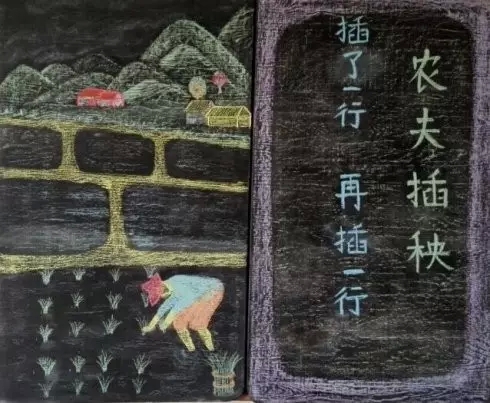 农夫插秧
插了一行
再插一行